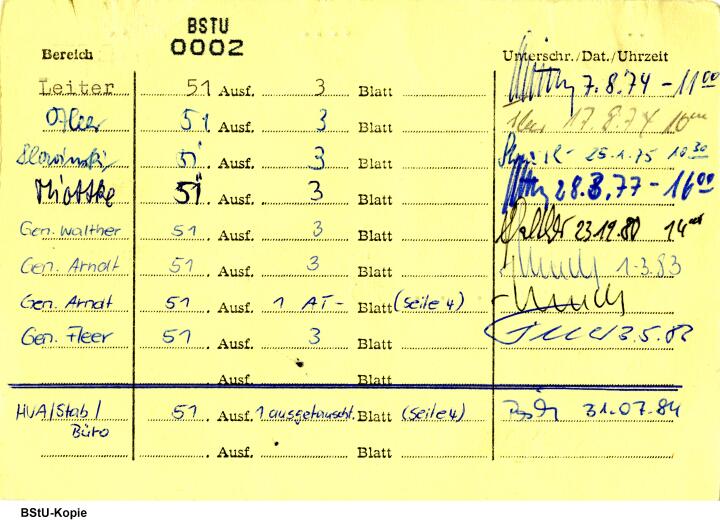 BSTU
0002
Bereich Unterschr./Dat./Uhrzeit
Leiter 51 Ausf. 3 Blatt 7.8.74 - 11 00
51. Ausf. 3 Blatt 17.8.74
Slowinski 51 Ausf. 3 Blatt 25.1.75 10 30
51 Ausf. 3 Blatt 28.3.77 - 16 00
Gen. Walther 51 . Ausf. 3 Blatt 23.12.80
Gen. Arndt 51 . Ausf. 3 Blatt 1.3.83
Gen. Arndt 51 . Ausf. 1 AT- Blatt (Seite 4)
Gen. Fleer 51 . Ausf. 3 Blatt
. Ausf. Blatt
HVA/Stab/ 51 . Ausf. 1 ausgetauscht. Blatt (Seite 4) 31.07.84
Büro
. Ausf. Blatt
BStU-Kopie